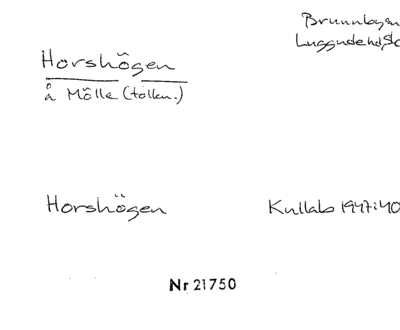 Brunnby
Luggude hd, Sk
Horshögen
å Mölle (tolkn.)
Horshögen Kullab 1947:40
Nr 21750